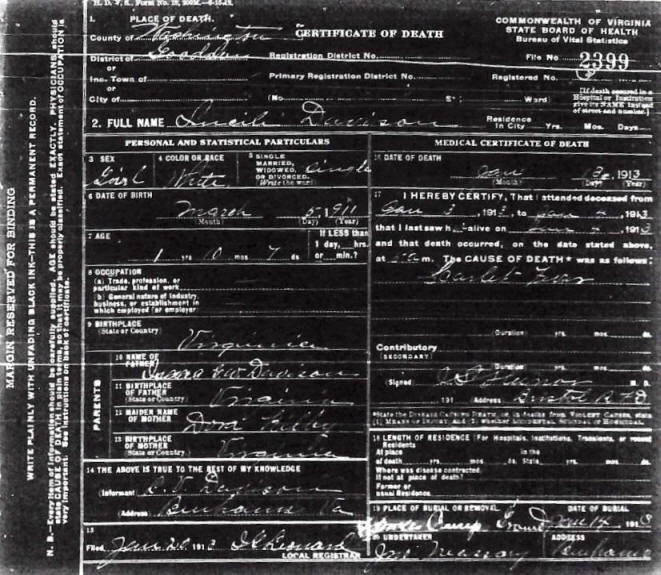 1. PLACE OF DEATH.
County of Washington
CERTIFICATE OF DEATH
COMMONWEALTH OF VIRGINIA
STATE BOARD OF HEALTH
Bureau of Vital Statistics
District of Goodson
Registration District No.
File No. 2399
or
Inc. Town of
Primary Registration District No.
Registered No.
or
City of (No. St. Ward)
[If death occured in a Hospital or Institution give its NAME instead of street and number.]
2. FULL NAME Davison
Residence In City Yrs. Mos. Days
PERSONAL AND STATISTICAL PARTICULARS
3 SEX Girl
4 COLOR OR RACE White
5 SINGLE, MARRIED, WIDOWED, OR DIVORCED. (Write the word) Single
6 DATE OF BIRTH
March 1911
(Month) (Day) (Year)
7 AGE
1 yrs 10 mos 7 ds
If LESS than 1 day, hrs. or min.?
8 OCCUPATION
(a) Trade, profession, or particular kind of work
(b) General nature of industry, business, or establishment in which employed (or employer)
9 BIRTHPLACE
(State or Country)
Virginia
PARENTS
10 NAME OF FATHER
Davison
11 BIRTHPLACE OF FATHER
(State or Country)
Virginia
12 MAIDEN NAME OF MOTHER
Dora
13 BIRTHPLACE OF MOTHER
(State or Country)
Virginia
14 THE ABOVE IS TRUE TO THE BEST OF MY KNOWLEDGE
(Informant) Davison
(Address) Benhams Va
15
Filed Jan 1913 Leonard
LOCAL REGISTRAR
MEDICAL CERTIFICATE OF DEATH
16 DATE OF DEATH
Jan 13 1913
(Month) (Day) (Year)
17 I HEREBY CERTIFY, That I attended deceased from
Jan 3 1913 to Jan 4 1913
that I last saw h alive on Jan 4 1913
and that death occurred, on the date stated above,
at m. The CAUSE OF DEATH* was as follows:
Scarlet Fever
Duration yrs. mos. ds.
Contributory
(SECONDARY)
Duration yrs. mos. ds.
(Signed) M. D.
191 (Address) Bristol R F D
*State the DISEASE CAUSING DEATH, or, in deaths from VIOLENT CAUSES, state (1) MEANS OF INJURY and (2) whether ACCIDENTAL, SUICIDAL or HOMICIDAL.
18 LENGTH OF RESIDENCE (For Hospitals, Institutions, Transients, or recent Residents
At place of death yrs. mos. ds. In the State yrs. mos. ds.
Where was disease contracted, If not at place of death?
Former or usual Residence
19 PLACE OF BURIAL OR REMOVAL Camp Ground
DATE OF BURIAL Jan 14 1913
20 UNDERTAKER
ADDRESS
Benhams
MARGIN RESERVED FOR BINDING
WRITE PLAINLY WITH UNFADING BLACK INK—THIS IS A PERMANENT RECORD.
N. B.—Every item of information should be carefully supplied. AGE should be stated EXACTLY. PHYSICIANS should state CAUSE OF DEATH in plain terms, so that it may be properly classified. Exact statement of OCCUPATION is very important. See instructions on back of certificate.